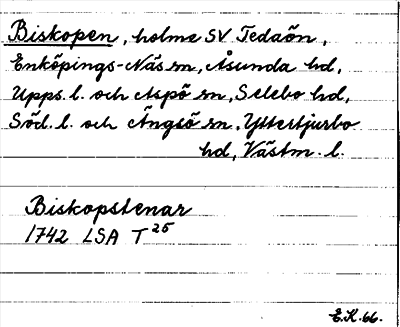 Biskopen, holme SV Tedaön,
Enköpings-Näs sn, Åsunda hd,
Upps. l. och Aspö sn, Selebo hd,
Söd. l. och Ängsö sn, Yttertjurbo
hd, Västm. l.
Biskopstenar
1742 LSA T 25
E.K. 66.